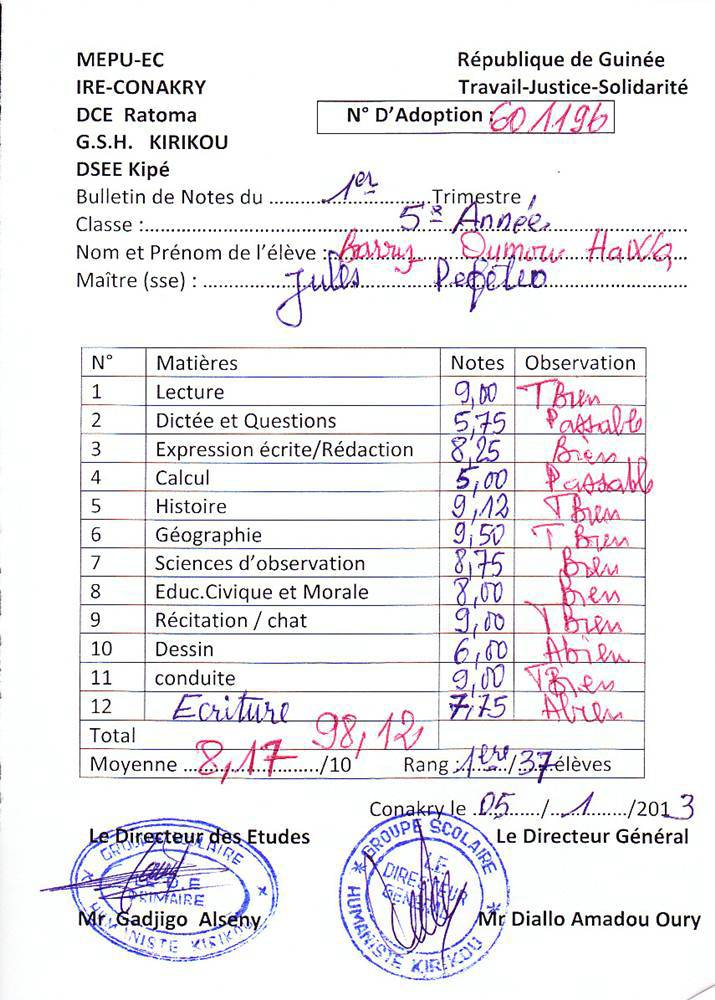 MEPU-EC République de Guinée
IRE-CONAKRY Travail-Justice-Solidarité
DCE Ratoma N° D'Adoption : 601196
G.S.H. KIRIKOU
DSEE Kipé
Bulletin de Notes du 1er Trimestre
Classe : 5è Année
Nom et Prénom de l'élève : Barry Oumou
Maître (sse) : Jules
N° Matières Notes Observation
1 Lecture 9,00 TBien
2 Dictée et Questions 5,75 Passable
3 Expression écrite/Rédaction 8,25 Bien
4 Calcul 5,00 Passable
5 Histoire 9,12 TBien
6 Géographie 9,50 T Bien
7 Sciences d'observation 8,75 Bien
8 Educ.Civique et Morale 8,00 Bien
9 Récitation / chat 9,00 TBien
10 Dessin 6,00 ABien
11 conduite 9,00 TBien
12 Ecriture 7,75 ABien
Total 98,12
Moyenne 8,17 /10 Rang : 1ere/37 élèves
Conakry le 05/1/2013
Le Directeur des Etudes Le Directeur Général
GROUPE SCOLAIRE
PRIMAIRE
HUMANISTE KIRIKOU
GROUPE SCOLAIRE
LE
DIRECTEUR
GENERAL
HUMANISTE KIRIKOU
Mr Gadjigo Alseny Mr Diallo Amadou Oury